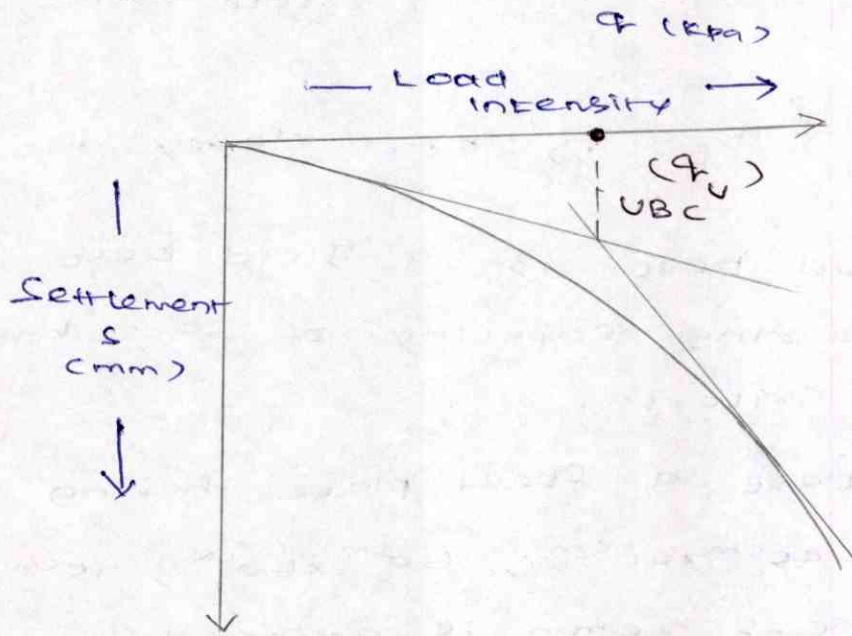 q (kpa)
Load
intensity
(qu)
UBC
Settlement
S
(mm)